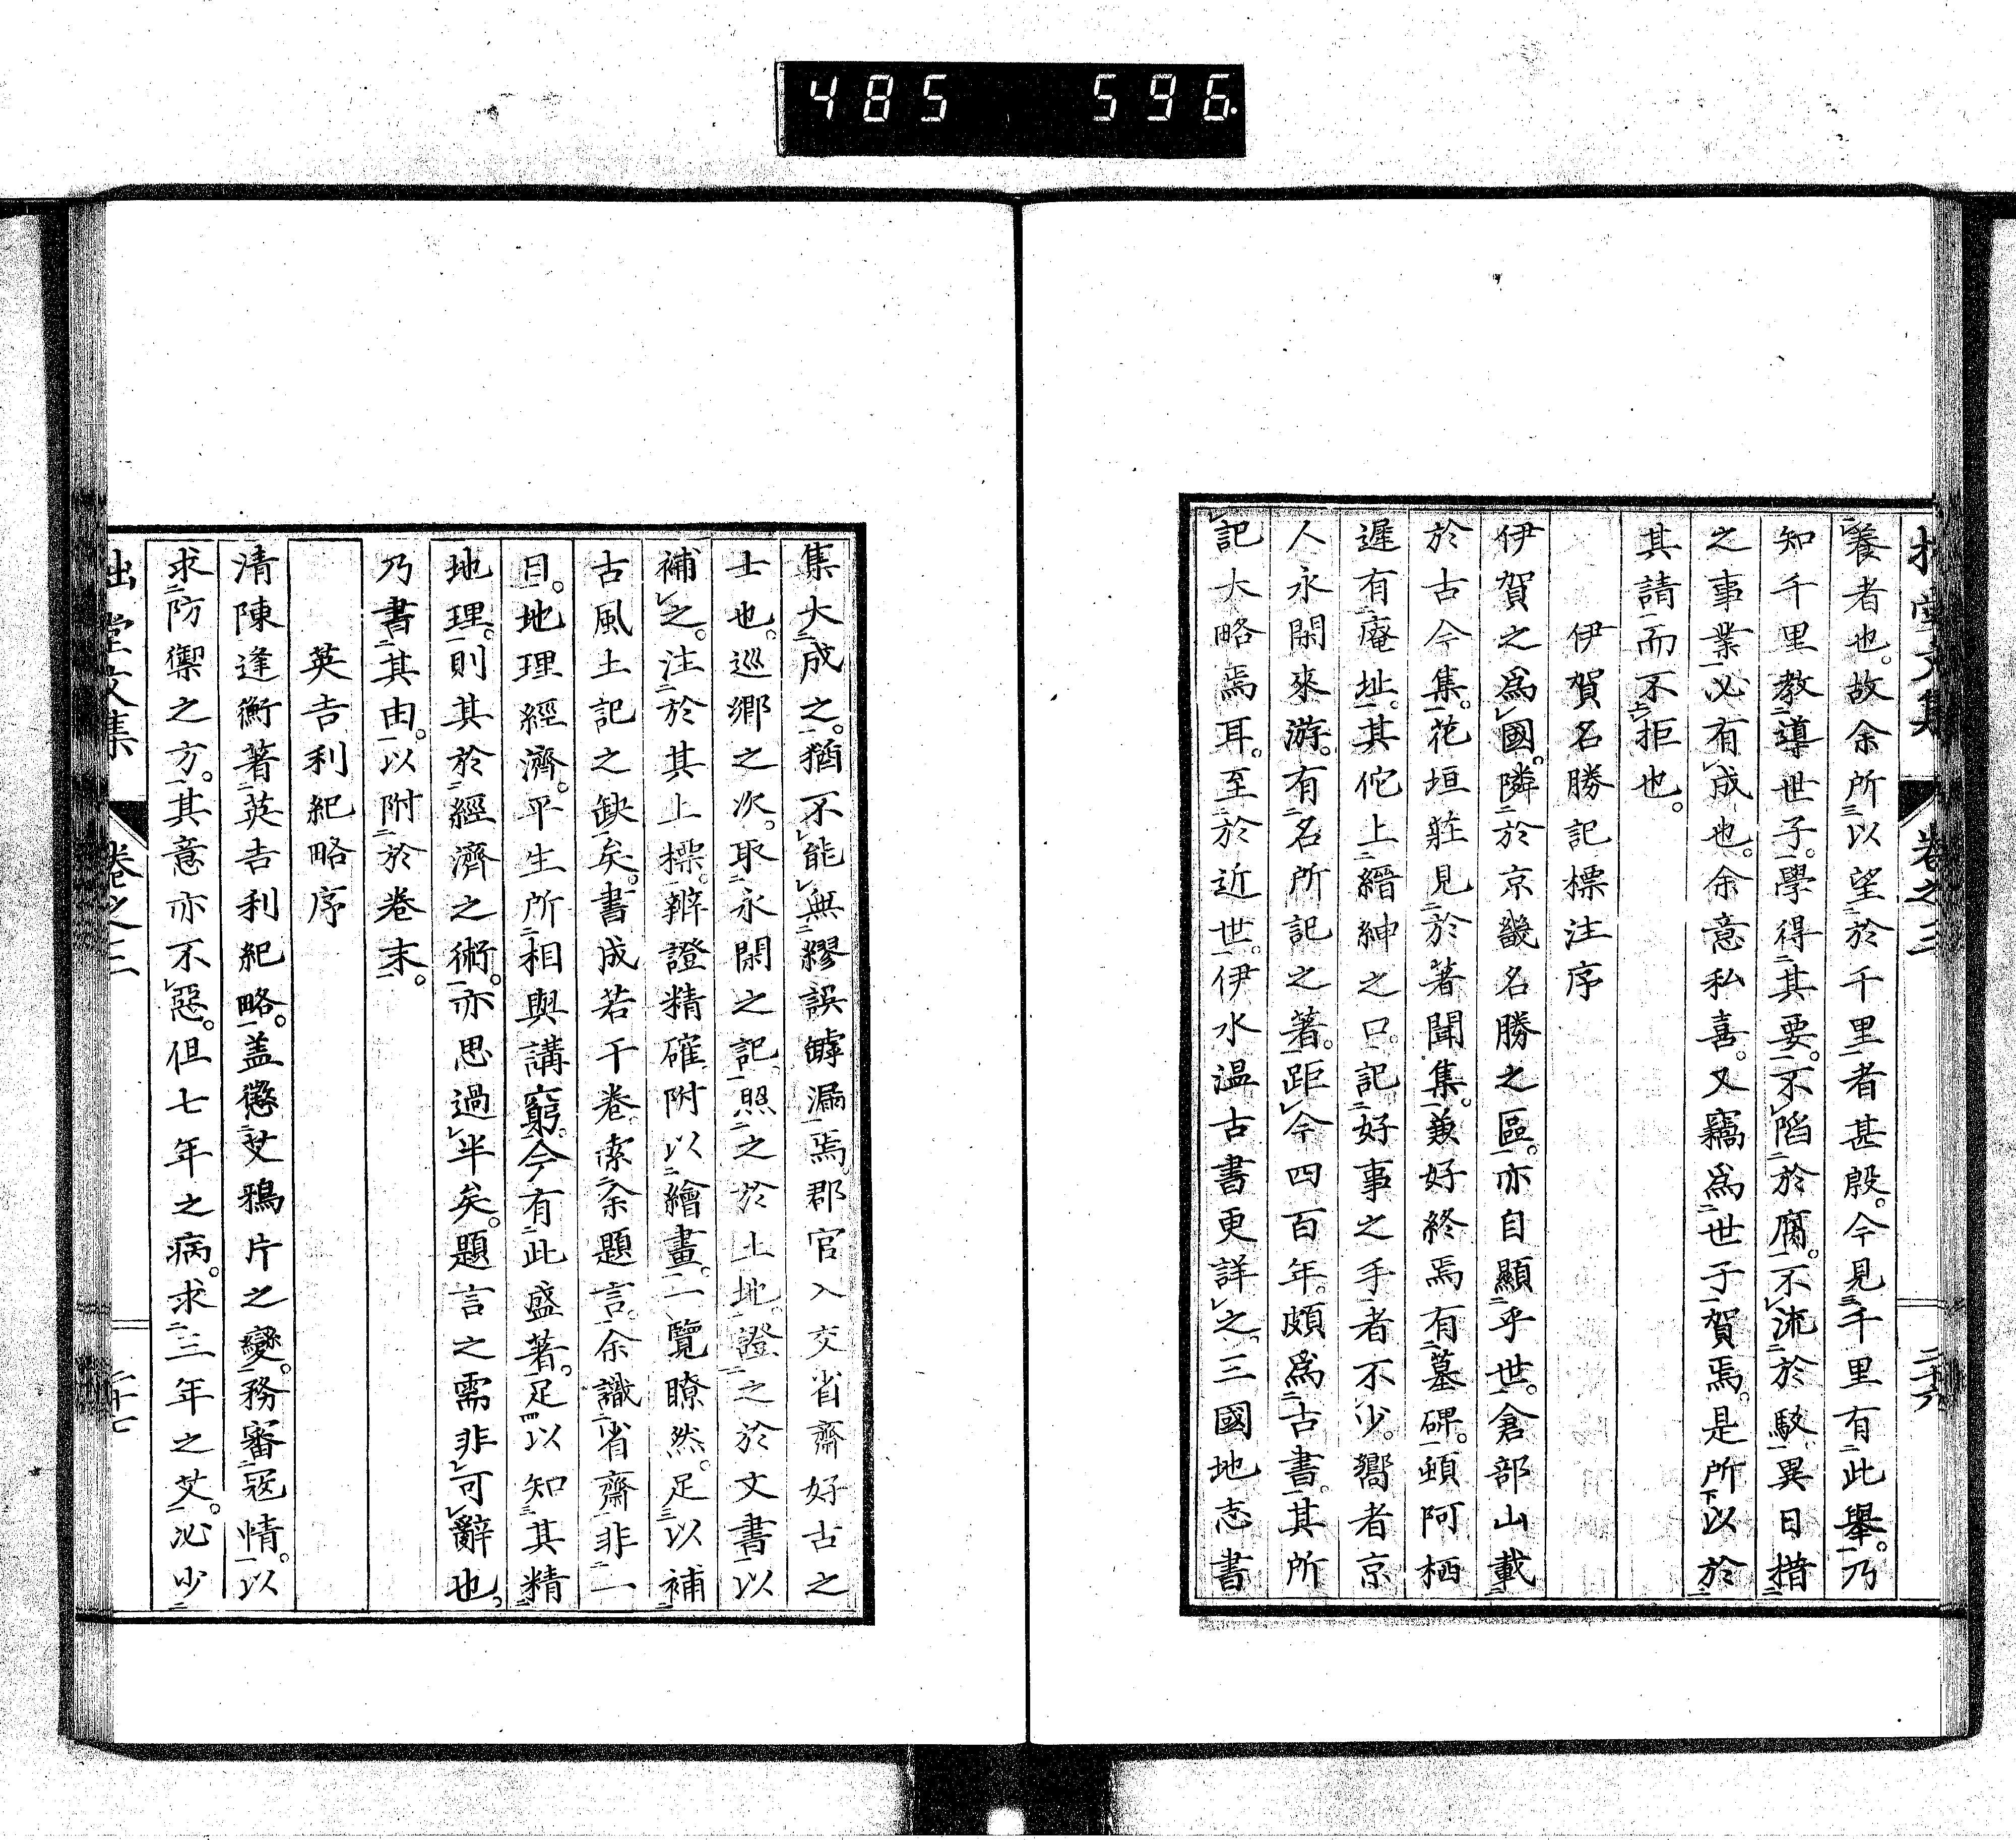 485 596
拙堂文集 卷之三 二十六
養者也。故余所以望於千里者甚殷。今見千里有此舉。乃
知千里教導世子。學得其要。不陷於腐。不流於駁。異日措
之事業。必有成也。余意私喜。又竊爲世子賀焉。是所以於
其請而不拒也。
伊賀名勝記標注序
伊賀之爲國。隣於京畿名勝之區。亦自顯乎世。倉部山載
於古今集。花垣莊見於著聞集。兼好終焉有墓碑。頓阿栖
遲有庵址。其佗上縉紳之口。記好事之手者不少。嚮者京
人永閑來游。有名所記之著。距今四百年。頗爲古書。其所
記大略焉耳。至於近世。伊水温古書更詳之。三國地志書
集大成之。猶不能無繆誤罅漏焉。郡官入交省齋好古之
士也。巡鄉之次。取永閑之記。照之於土地。證之於文書。以
補之。注於其上標。辨證精確。附以繪畫。一覽瞭然。足以補
古風土記之缺矣。書成若干卷。索余題言。余識省齋非一
日。地理經濟。平生所相與講窮。今有此盛著。足以知其精
地理。則其於經濟之術。亦思過半矣。題言之需非可辭也。
乃書其由。以附於卷末。
英吉利紀略序
清陳逢衡著英吉利紀略。蓋懲艾鴉片之變。務審寇情。以
求防禦之方。其意亦不惡。但七年之病。求三年之艾。必少
拙堂文集 卷之三 二十七